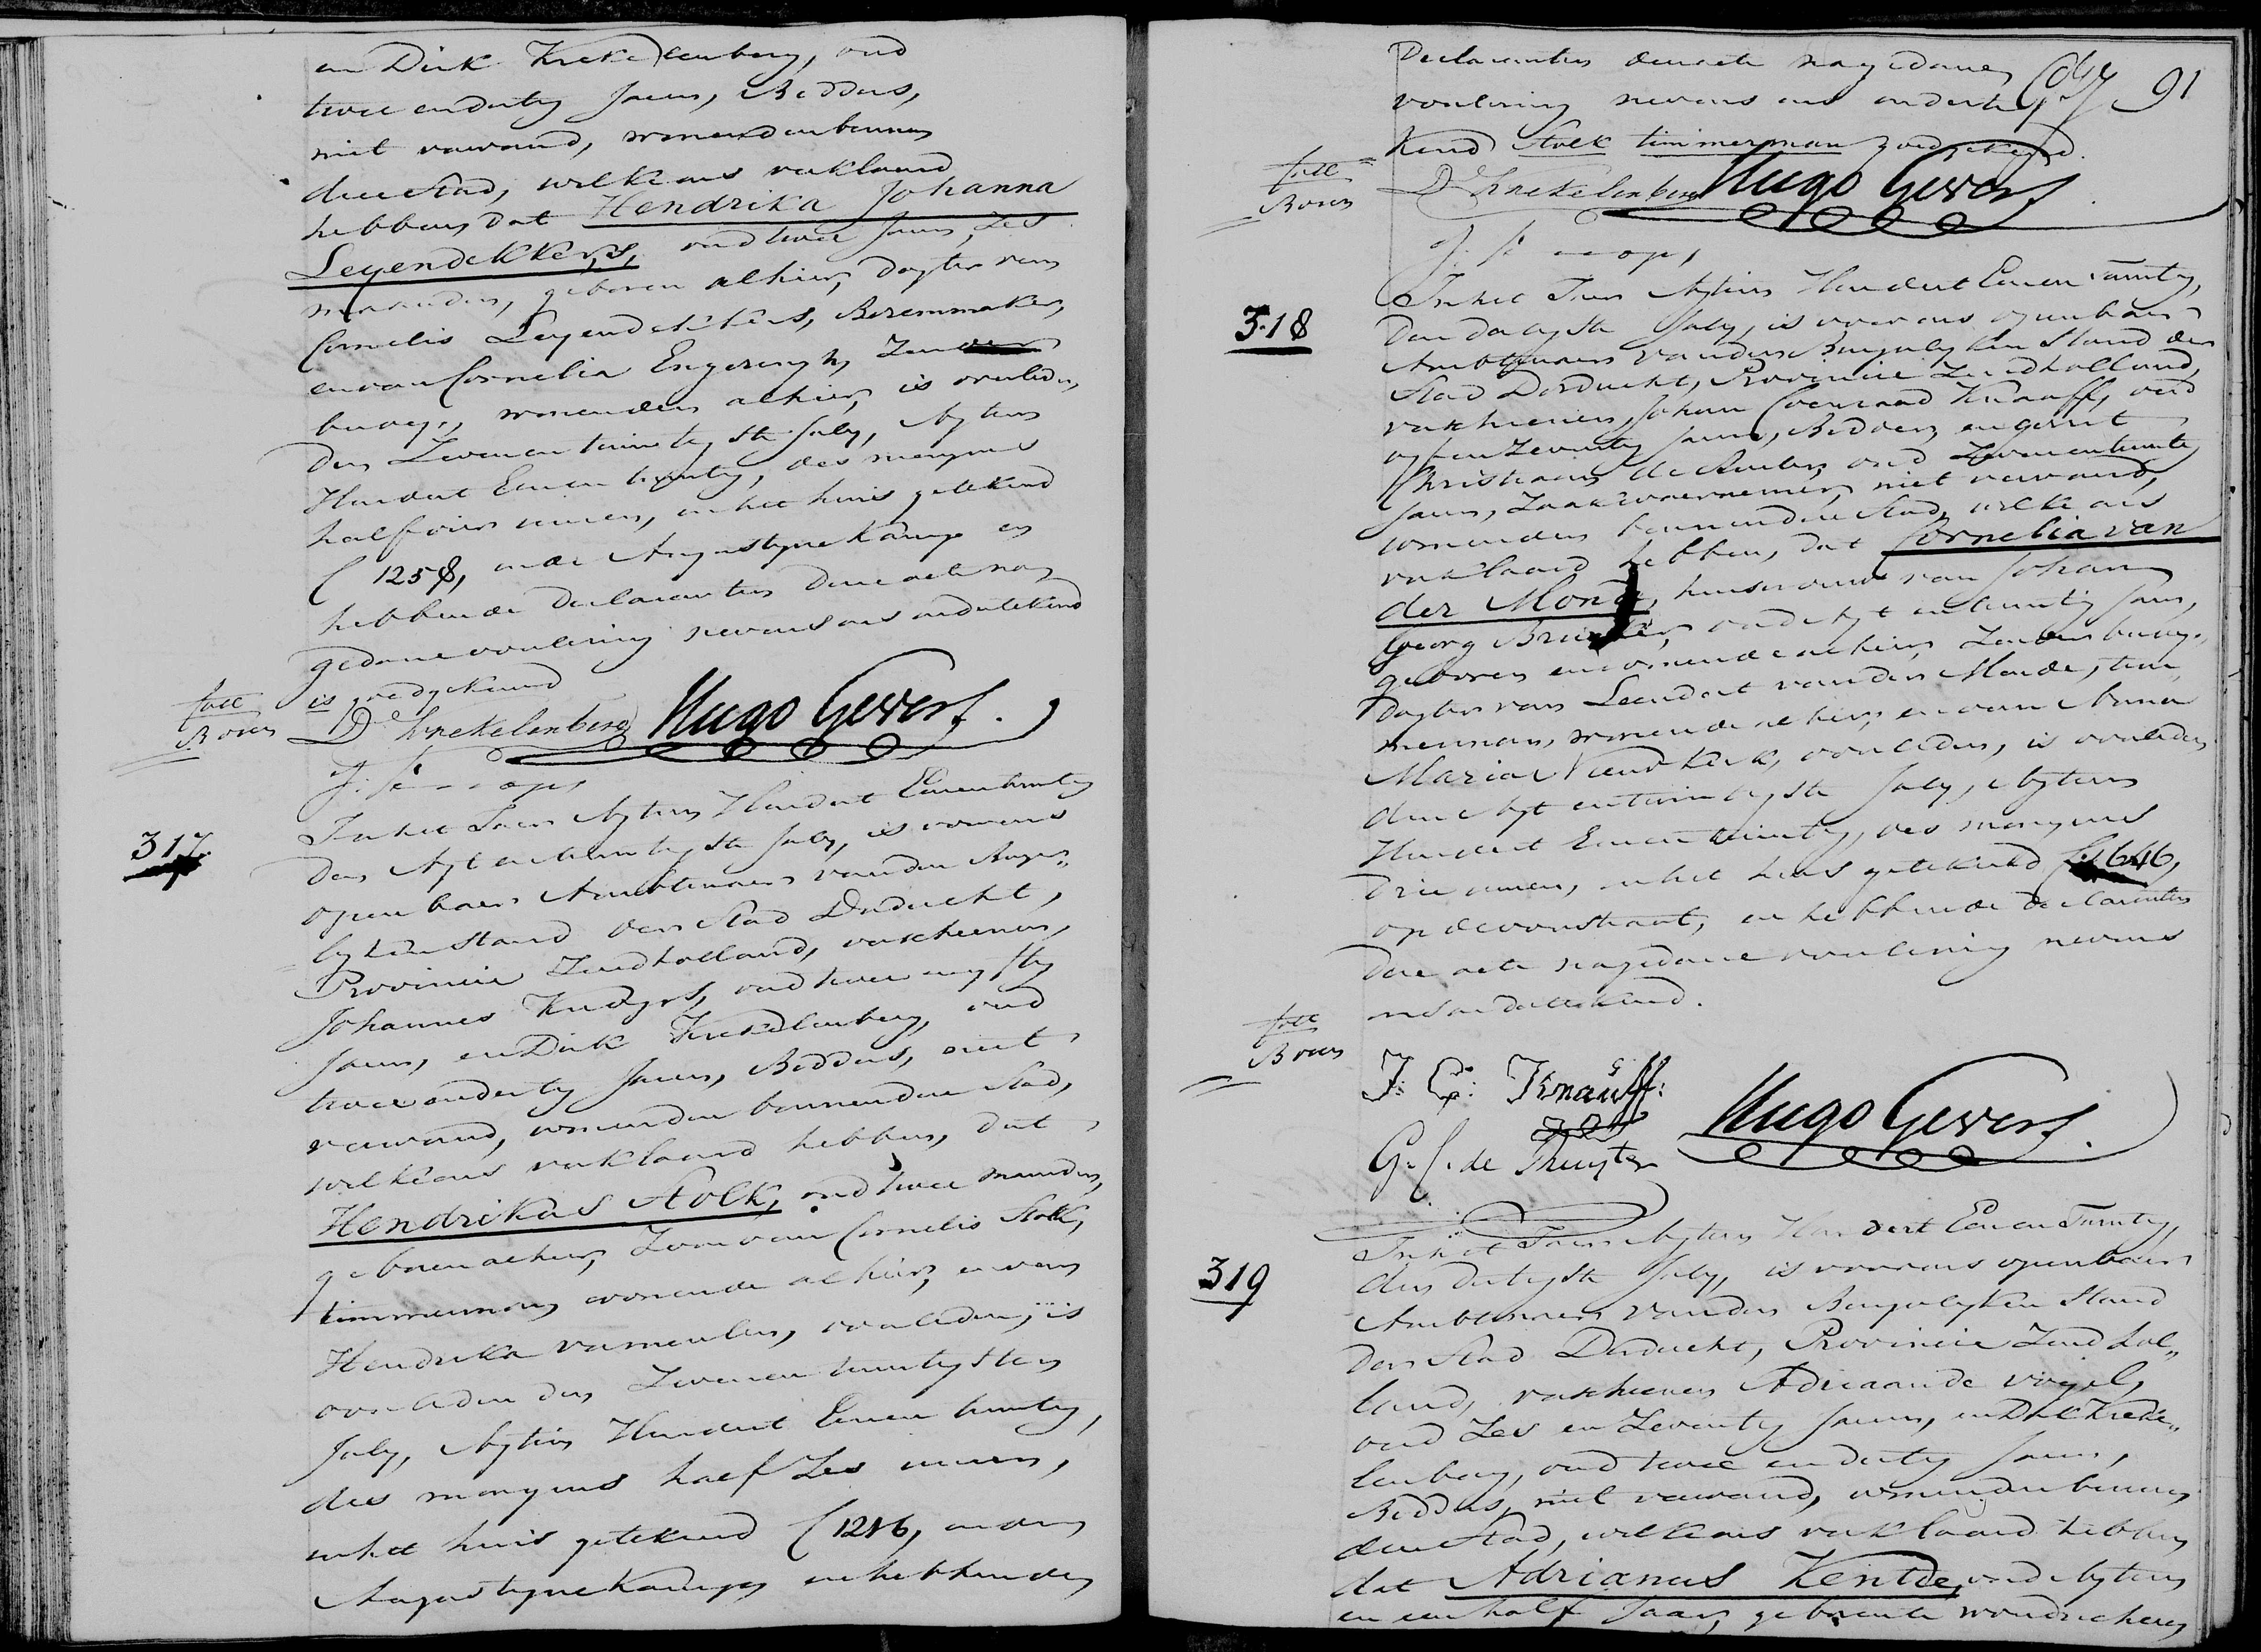 en Dirk Krekelenberg, oud
twee en dertig Jaren, Bidders,
niet verwand, wonende binnen
deze Stad, welke ons verklaard
hebben dat Hendrika Johanna
Leyendekkers, oud twee Jaren, Zes
maanden, geboren alhier, dogter van
Cornelis Leyendekkers, Bezemmaker,
en van Cornelia Engering, Zonder
beroep, wonende alhier, is overleden
den Zevenentwintigste July, Agtien
Hondert Eenentwintig, des morgens
half vier uuren, in het huis getekend
C 1258, in de Augustyne Kamp en
hebbende Declaranten deze acte na
gedane voorlezing nevens ons ondertekend
is goedgekeurd
fait
Boven
D Krekelenberg Hugo Gevers
317.
In het Jaar Agtien Hondert Eenentwintig
den Agt en twintigste July, is voor ons
openbaar Ambtenaar van den Burger„
lyken Stand der Stad Dordrecht,
Provincie Zuidholland, verschenen,
Johannes, oud twee en
Jaren, en Dirk Krekelenberg, oud
twee en dertig Jaren, Bidders, niet
verwand, wonende binnen deze Stad,
welke ons verklaard hebben, dat
Hendrikus Stolk, oud twee maanden,
geboren alhier, Zoon van Cornelis Stolk,
timmerman, wonende alhier, en van
Hendrika Vermeulen, overleden, is
overleden den Zevenentwintigsten
July, Agtien Hondert Eenentwintig,
des morgens half Zes uuren,
in het huis getekend C 1216, in den
Augustyne Kamp, en hebbende
91
Declaranten deze acte na gedane
voorlezing nevens ons onderte
kend Stolk timmerman goedgekeurd.
fait
Boven
D Krekelenberg Hugo Gevers
318
In het Jaar Agtien Hondert Eenentwintig,
den dertigste July, is voor ons openbaar
Ambtenaar van den Burgerlyken Stand der
Stad Dordrecht, Provincie Zuidholland,
verschenen, Johan Coenraad Knauff, oud
Jaren, Bidder, en Gerrit
Christiaan de Ruyter, oud Zevenentwintig
Jaren, Zaakwaarnemer, niet verwand,
wonende binnen deze Stad, welke ons
verklaard hebben, dat Cornelia van
der Monde, huisvrouw van Johan
Georg, oud Agt en twintig Jaren,
geboren en wonende alhier, Zonder beroep,
dogter van Leendert van der Monde, tim„
merman, wonende alhier, en van Anna
Maria, overleden, is overleden
den Agt en twintigste July, Agtien
Hondert Eenentwintig, des morgens
drie uuren, in het huis getekend C 1646,
op de voorstraat, en hebbende Declaranten
deze acte na gedane voorlezing nevens
ons ondertekend.
fait
Boven
J: C: Knauff:
G. C. de Ruyter Hugo Gevers
319
In het Jaar Agtien Hondert Eenentwintig,
den dertigste July, is voor ons openbaar
Ambtenaar van den Burgerlyken Stand
der Stad Dordrecht, Provincie Zuidhol„
land, verschenen Adriaan de Vogel,
oud Zes en Zeventig Jaren, en Dirk Kreke„
lenberg, oud twee en dertig Jaren,
Bidders, niet verwand, wonende binnen
deze Stad, welke ons verklaard hebben
dat Adrianus Kentie, oud Agtien
en een half Jaar, geboren te Woudrichem